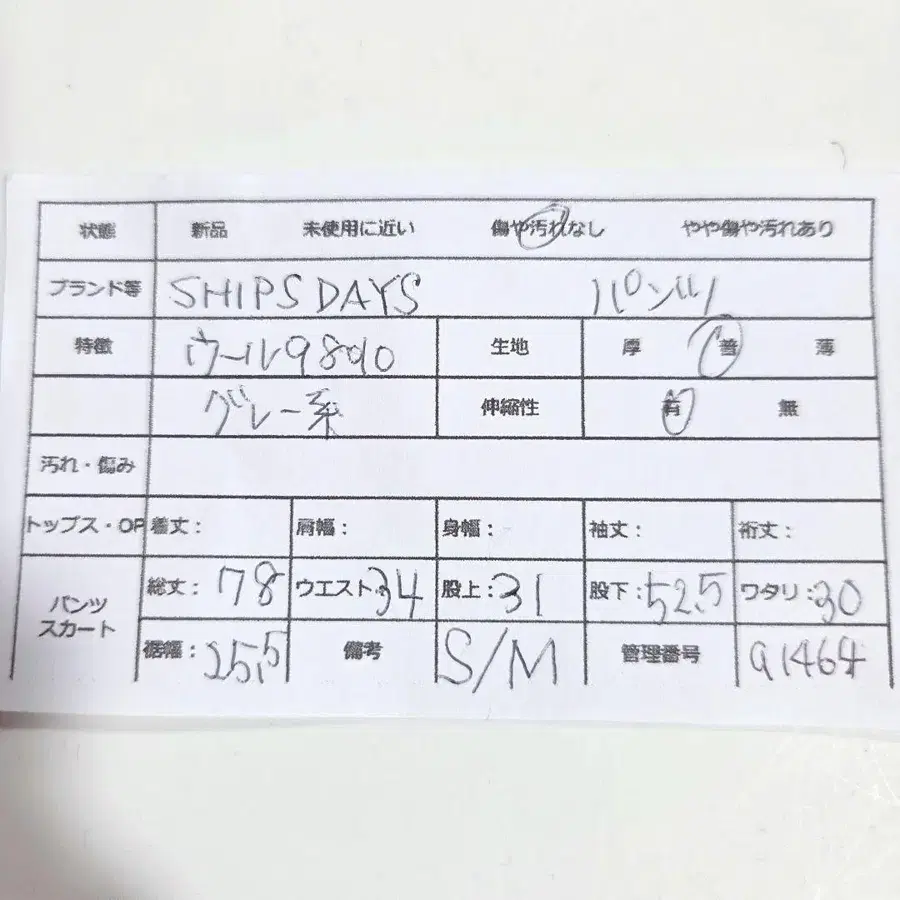 状態 新品 未使用に近い 傷や汚れなし やや傷や汚れあり
ブランド等 SHIPS DAYS パンツ
特徴 ウール98% 生地 厚 普 薄
グレー系 伸縮性 有 無
汚れ・傷み
トップス・OP 着丈: 肩幅: 身幅: 袖丈: 裄丈:
パンツ スカート 総丈: 78 ウエスト 34 股上: 31 股下: 52.5 ワタリ: 30
裾幅: 25.5 備考 S/M 管理番号 a1464